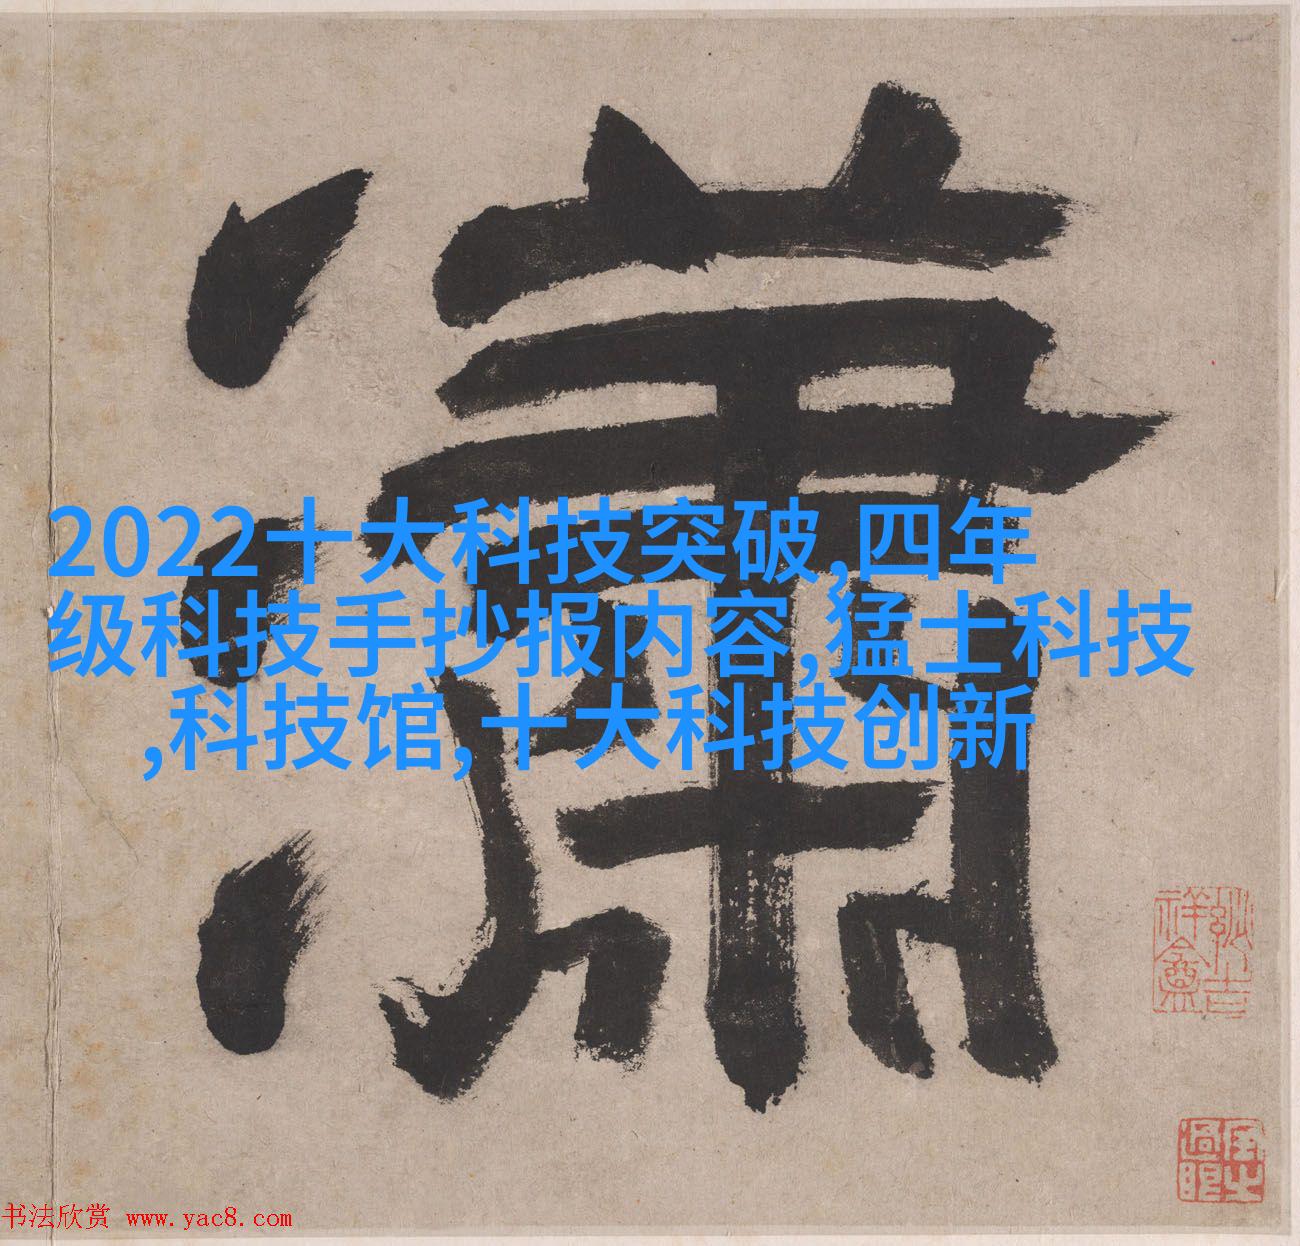 瀟
2022十大科技突破,四年
级科技手抄报内容,猛士科技
,科技馆,十大科技创新
书法欣赏 www.yac8.com